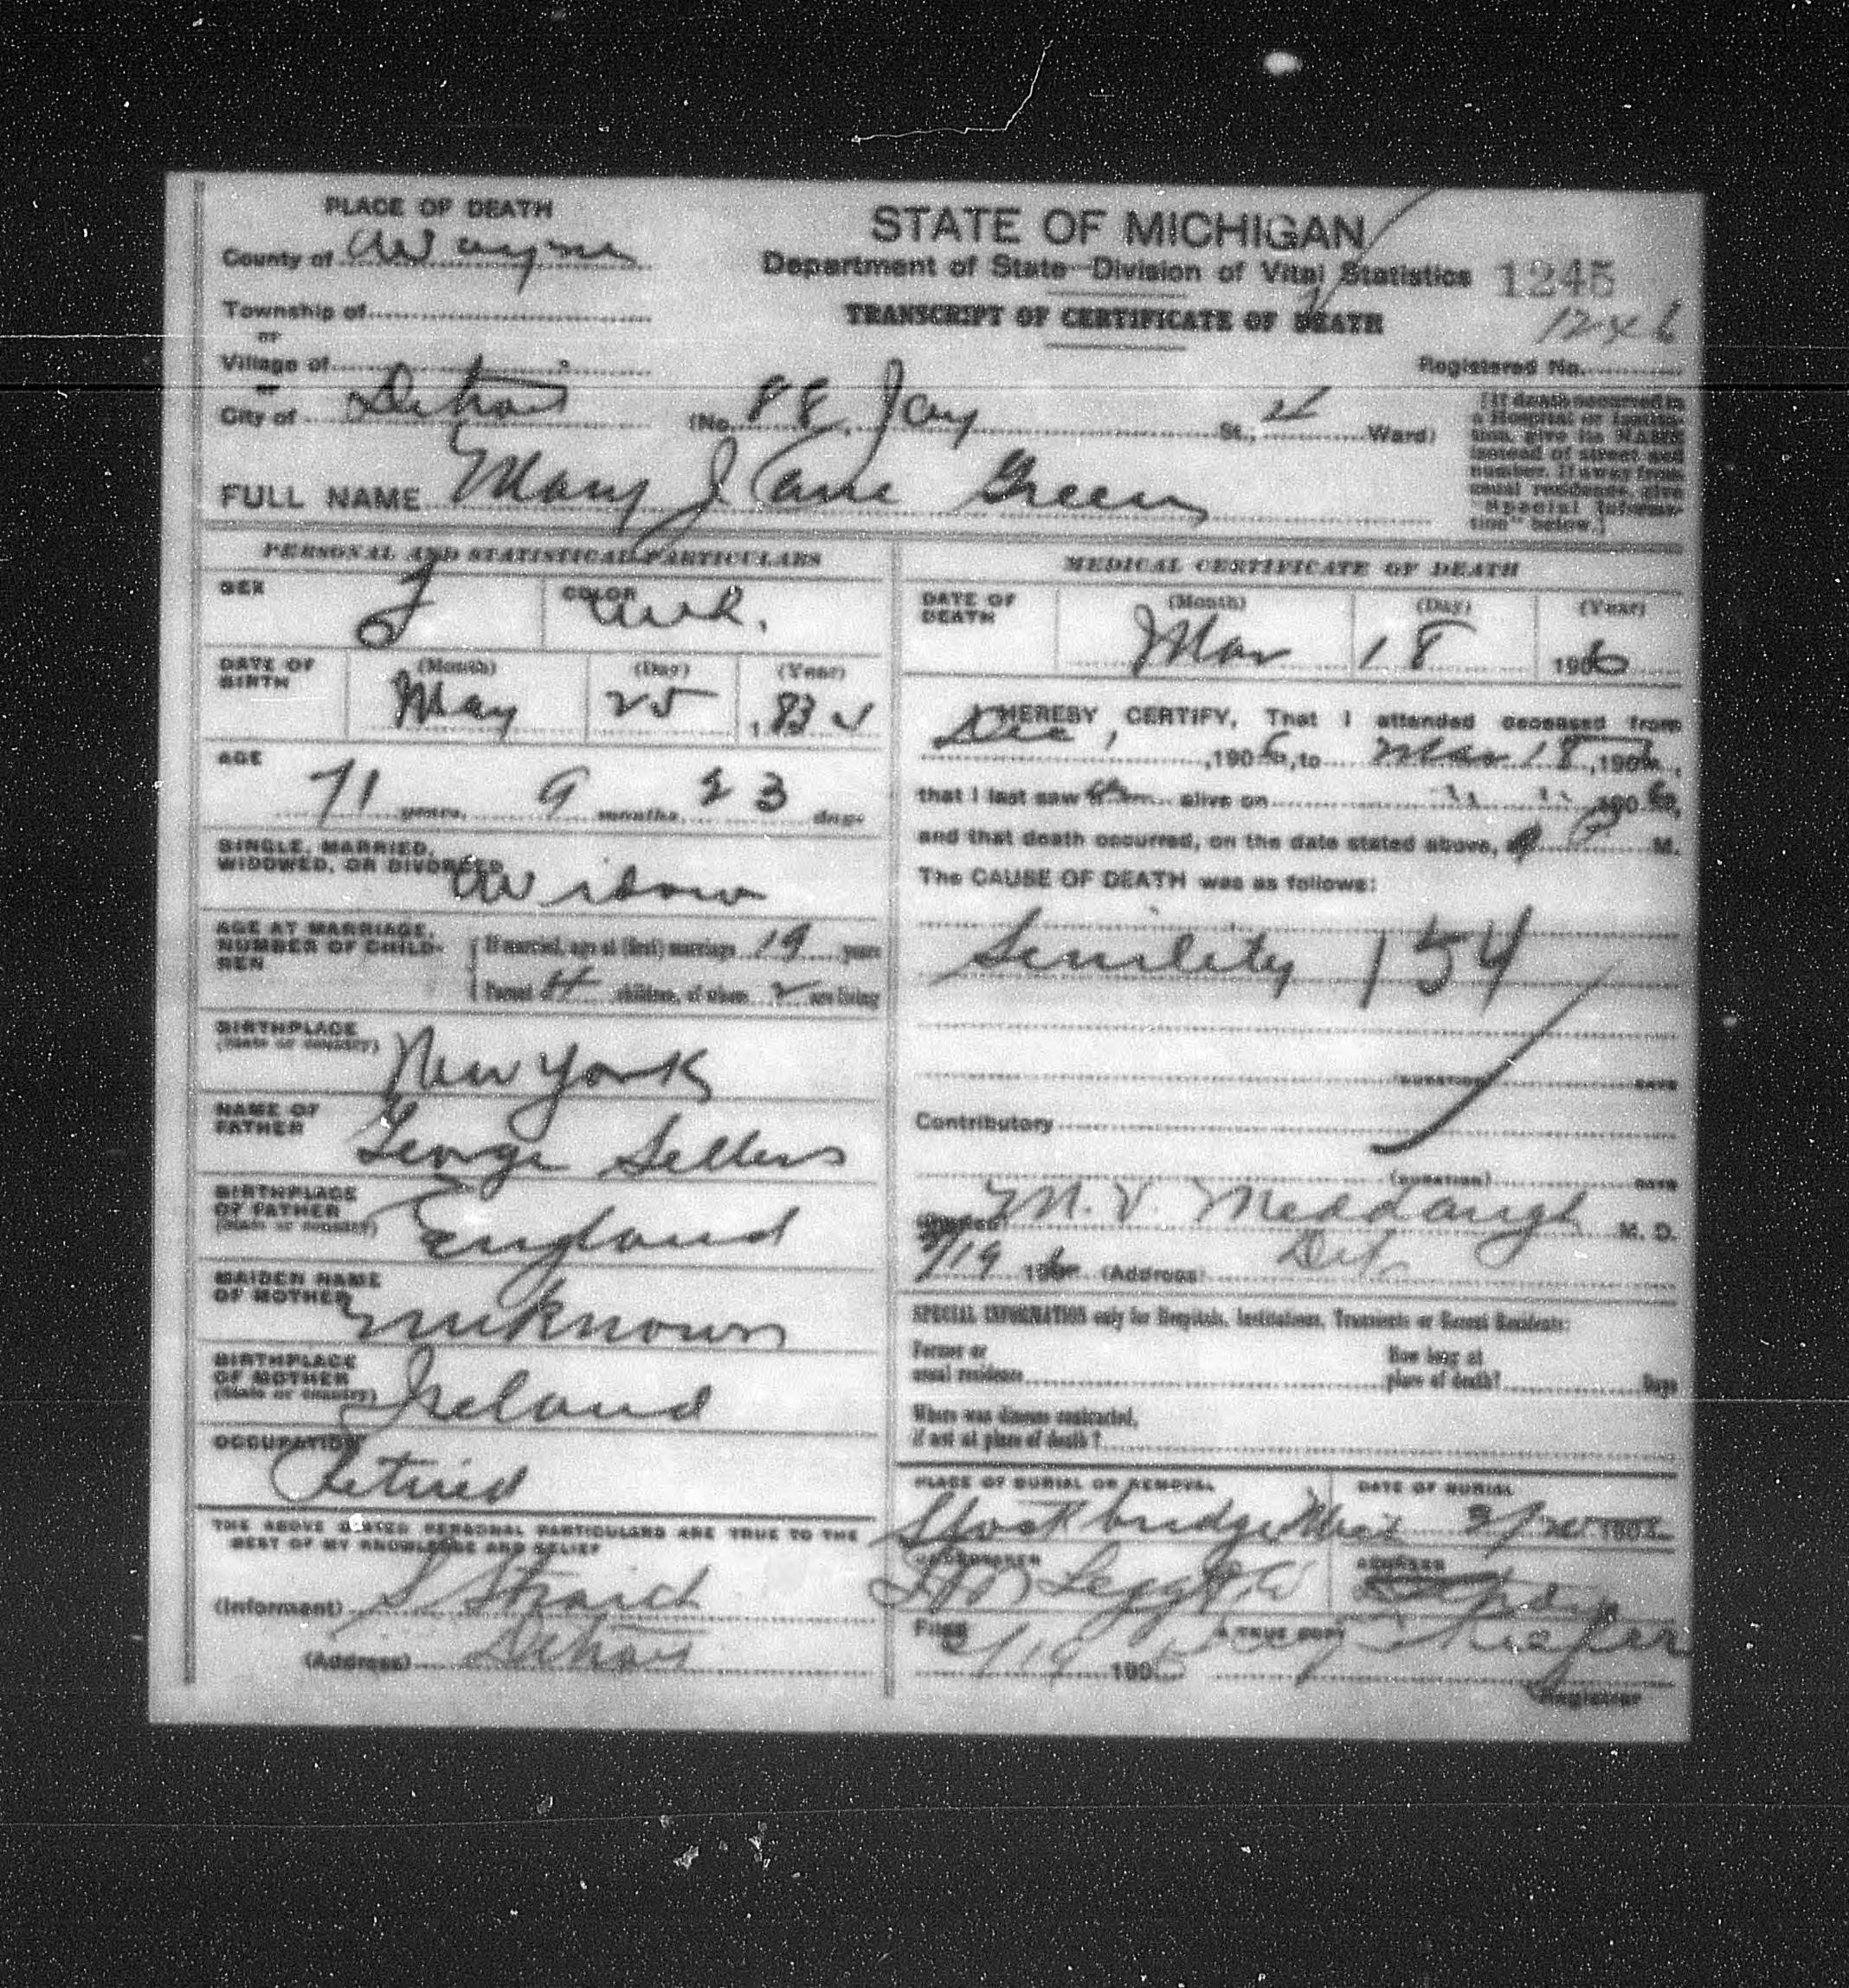 PLACE OF DEATH
County of Wayne
Township of
or
Village of
or
City of Detroit (No. 88 Jay St., Ward)
STATE OF MICHIGAN
Department of State—Division of Vital Statistics
1245
TRANSCRIPT OF CERTIFICATE OF DEATH
1246
Registered No.
[If death occurred in
a Hospital or Institu-
tion, give its NAME
instead of street and
number. If away from
usual residence, give
"Special Informa-
tion" below.]
FULL NAME Mary Jane Green
PERSONAL AND STATISTICAL PARTICULARS
SEX F COLOR Wh.
DATE OF BIRTH (Month) May (Day) 25 (Year)
AGE 71 years, 9 months, 23 days
SINGLE, MARRIED,
WIDOWED, OR DIVORCED Widow
AGE AT MARRIAGE,
NUMBER OF CHILD-
REN
If married, age at (first) marriage 19 years
Parent of 4 children, of whom 2 are living
BIRTHPLACE
(State or country) New York
NAME OF
FATHER George Sellers
BIRTHPLACE
OF FATHER
(State or country) England
MAIDEN NAME
OF MOTHER Unknown
BIRTHPLACE
OF MOTHER
(State or country) Ireland
OCCUPATION
Retired
THE ABOVE STATED PERSONAL PARTICULARS ARE TRUE TO THE
BEST OF MY KNOWLEDGE AND BELIEF
(Informant) S
(Address) Detroit
MEDICAL CERTIFICATE OF DEATH
DATE OF DEATH (Month) Mar (Day) 18 (Year) 1906
I HEREBY CERTIFY, That I attended deceased from
Dec, 190 , to Mar 18, 1906,
that I last saw alive on " " 1906,
and that death occurred, on the date stated above, at P M.
The CAUSE OF DEATH was as follows:
Senility 154
(DURATION) DAYS
Contributory
(DURATION) DAYS
(Signed) M. V. Meddaugh M. D.
3/19 1906 (Address) Det
SPECIAL INFORMATION only for Hospitals, Institutions, Transients or Recent Residents:
Former or
usual residence
How long at
place of death? Days
Where was disease contracted,
if not at place of death?
PLACE OF BURIAL OR REMOVAL
Stockbridge Mich
DATE OF BURIAL
3/20 190
UNDERTAKER
ADDRESS
Filed 3/19 190
A TRUE COPY
Registrar